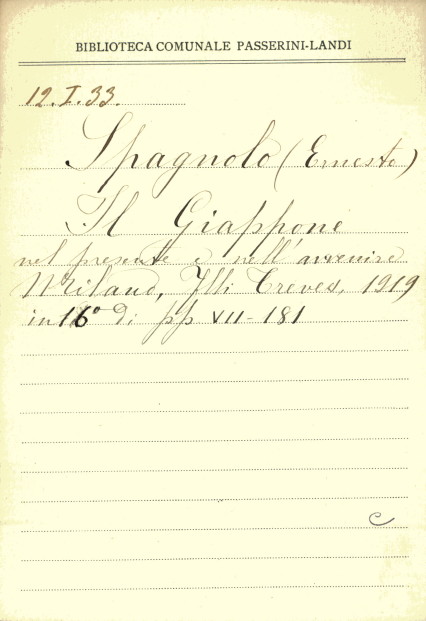 BIBLIOTECA COMUNALE PASSERINI-LANDI
12.I.33.
Spagnolo (Ernesto)
Il Giappone
nel presente e nell'avvenire
Milano, Flli Treves, 1919
in 16º di pp VII-181
C